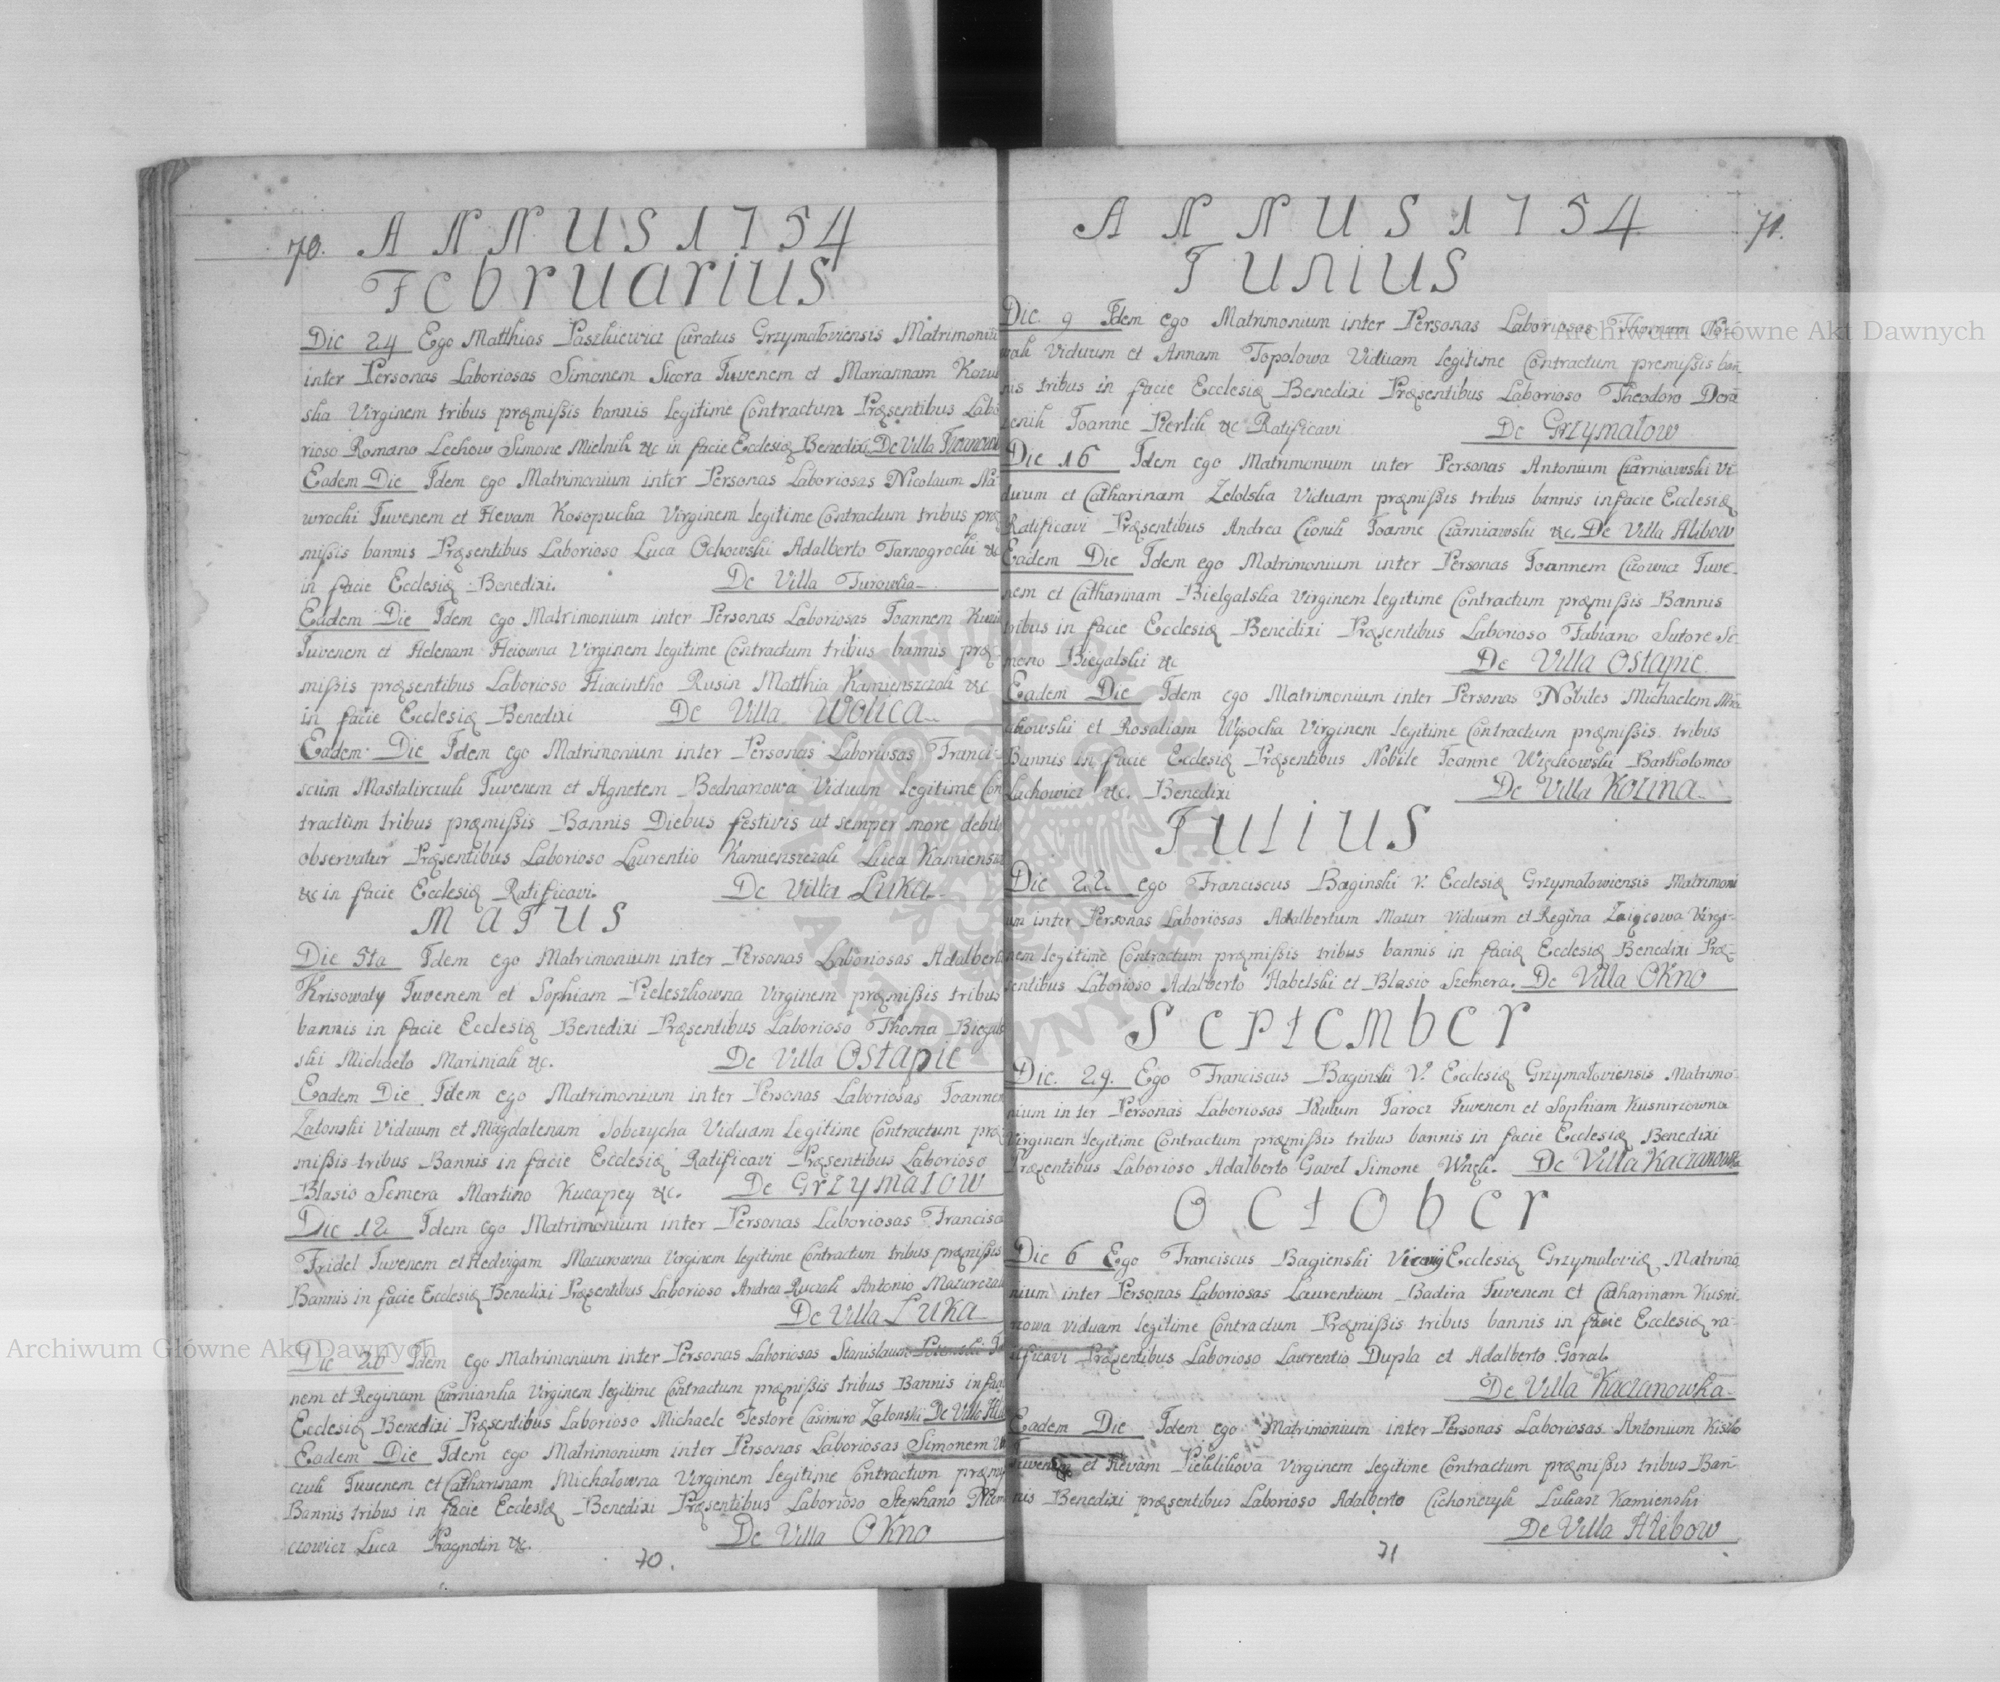 70.
ANNUS 1754
Februarius
Die 24 Ego Matthias Paszkiewicz Curatus Grzymaloviensis Matrimoniu
inter Personas Laboriosas Simonem Sicora Juvenem et Mariannam Kozu
ska Virginem tribus præmissis bannis legitime Contractum Præsentibus Labo
rioso Romano Lechow Simone Mielnik &c in facie Ecclesiæ Benedixi De Villa
Eadem Die Idem ego Matrimonium inter Personas Laboriosas Nicolaum Na
wrocki Juvenem et Hevam Kosopucka Virginem legitime Contractum tribus præ
missis bannis Præsentibus Laborioso Luca Ochowski Adalberto Tarnogrocki &c
in facie Ecclesiæ Benedixi. De Villa Turowka
Eadem Die Idem ego Matrimonium inter Personas Laboriosas Joannem
Juvenem et Helenam Heiowna Virginem legitime Contractum tribus bannis præ
missis præsentibus Laborioso Hiacintho Rusin Matthia Kamienszczak &c
in facie Ecclesiæ Benedixi De Villa Wolica
Eadem Die Idem ego Matrimonium inter Personas Laboriosas Franci-
scum Mastalirczuk Juvenem et Agnetem Bednarzowa Viduam legitime Con
tractum tribus præmissis Bannis Diebus festivis ut semper more debito
observatur Præsentibus Laborioso Laurentio Kamienszczak Luca Kamiensz
&c in facie Ecclesiæ Ratificavi. De Villa Luka
MAJUS
Die 5ta Idem ego Matrimonium inter Personas Laboriosas Adalbert
Krisowaty Juvenem et Sophiam Pieleszkowna Virginem præmissis tribus
bannis in facie Ecclesiæ Benedixi Præsentibus Laborioso Thoma Biegal
ski Michaelo Mariniak &c. De Villa Ostapie
Eadem Die Idem ego Matrimonium inter Personas Laboriosas Joannem
Zatonski Viduum et Magdalenam Sobczycha Viduam Legitime Contractum præ
missis tribus Bannis in facie Ecclesiæ Ratificavi Præsentibus Laborioso
Blasio Semera Martino Kucapey &c. De Grzymatow
Die 12 Idem ego Matrimonium inter Personas Laboriosas Francisc
Fridel Juvenem et Hedvigam Mazurowna Virginem legitime Contractum tribus præmissis
Bannis in facie Ecclesiæ Benedixi Præsentibus Laborioso Andrea Ruczak Antonio Mazurczak
De Villa Luka
Die 26 Idem ego Matrimonium inter Personas Laboriosas Stanislaum
nem et Reginam Czarnianka Virginem legitime Contractum præmissis tribus Bannis in facie
Ecclesiæ Benedixi Præsentibus Laborioso Michaele Textore Casimiro Zatonski De Villa
Eadem Die Idem ego Matrimonium inter Personas Laboriosas Simonem
czuk Juvenem et Catharinam Michalowna Virginem legitime Contractum præmis
Bannis tribus in facie Ecclesiæ Benedixi Præsentibus Laborioso Stephano
czowicz Luca Pragnolin &c. De Villa Okno
70.
71.
ANNUS 1754
Junius
Die 9 Idem ego Matrimonium inter Personas Laboriosas Thomam
wak Viduum et Annam Topolowa Viduam legitime Contractum premissis ban
nis tribus in facie Ecclesiæ Benedixi Præsentibus Laborioso Theodoro
zenik Joanne Pierlik &c Ratificavi De Grzymatow
Die 16 Idem ego Matrimonium inter Personas Antonium Czarniawski Vi
duum et Catharinam Zelolska Viduam præmissis tribus bannis in facie Ecclesiæ
Ratificavi Præsentibus Andrea Cionik Joanne Czarniawski &c. De Villa Hlibow
Eadem Die Idem ego Matrimonium inter Personas Joannem Cicowicz Juve-
nem et Catharinam Bielgalska Virginem legitime Contractum præmissis Bannis
tribus in facie Ecclesiæ Benedixi Præsentibus Laborioso Fabiano Sutore Si-
meno Biegalski &c De Villa Ostapie
Eadem Die Idem ego Matrimonium inter Personas Nobiles Michaelem
kowski et Rosaliam Wysocka Virginem legitime Contractum præmissis tribus
Bannis in facie Ecclesiæ Præsentibus Nobile Joanne Więckowski Bartholomeo
Lachowicz &c. Benedixi De Villa Kozina
Julius
Die 22 ego Franciscus Baginski V. Ecclesiæ Grzymalowiensis Matrimoni
um inter Personas Laboriosas Adalbertum Mazur Viduum et Regina Zaięcowa Virgi-
nem legitime Contractum præmissis tribus bannis in facie Ecclesiæ Benedixi Præ-
sentibus Laborioso Adalberto Habelski et Blasio Szemera. De Villa Okno
September
Die 29. Ego Franciscus Baginski V. Ecclesiæ Grzymaloviensis Matrimo-
nium inter Personas Laboriosas Paulum Tarocz Juvenem et Sophiam Kusnirzowna
Virginem legitime Contractum præmissis tribus bannis in facie Ecclesiæ Benedixi
Præsentibus Laborioso Adalberto Gavel Simone Wnęk. De Villa Kaczanowka
October
Die 6 Ego Franciscus Bagienski Vicarij Ecclesiæ Grzymaloviæ Matrimo
nium inter Personas Laboriosas Laurentium Badira Juvenem et Catharinam Kusni-
rzowa viduam legitime Contractum Præmissis tribus bannis in facie Ecclesiæ ra-
tificavi Præsentibus Laborioso Laurentio Dupla et Adalberto Goral
De Villa Kaczanowka
Eadem Die Idem ego Matrimonium inter Personas Laboriosas Antonium Kiszlo
Juvenem et Hevam Pieklikova Virginem legitime Contractum præmissis tribus Ban-
nis Benedixi præsentibus Laborioso Adalberto Cichonczyk Lukasz Kamienski
De Villa Hlibow
71
Archiwum Główne Akt Dawnych
Archiwum Główne Akt Dawnych
ARCHIWUM GŁÓWNE AKT DAWNYCH